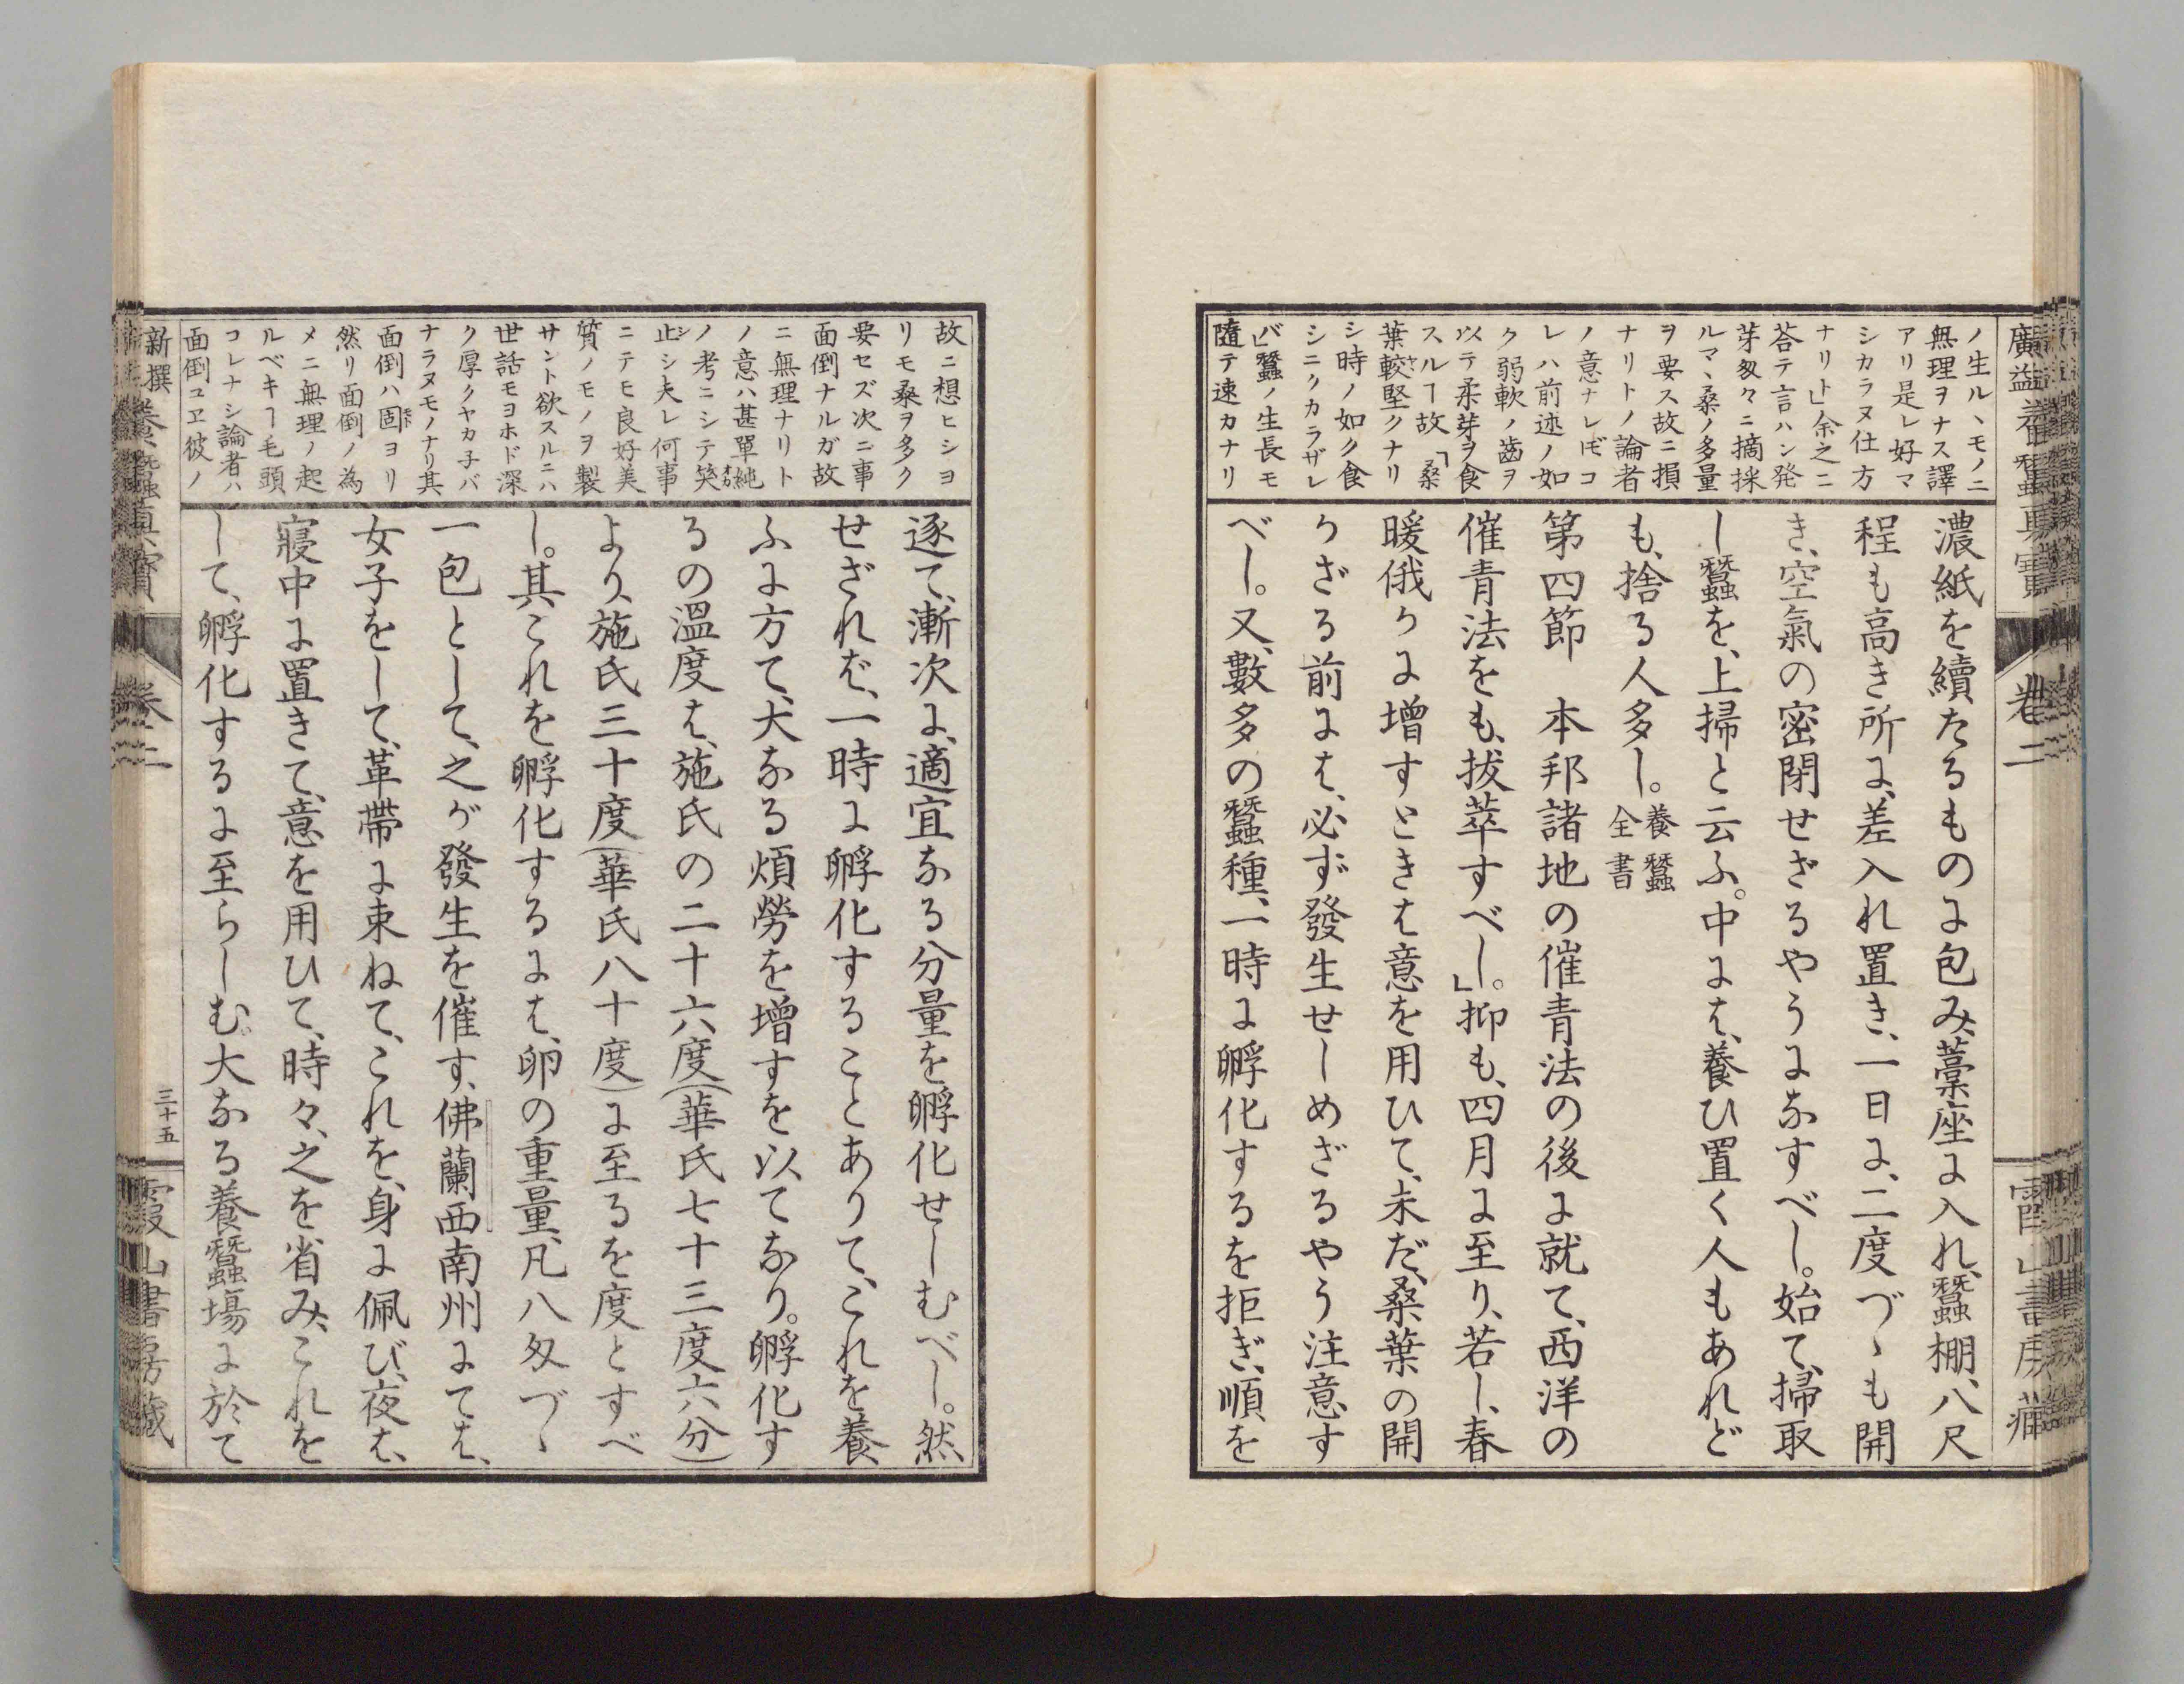 廣益養蠶眞寶
卷二
霞山書房藏
ノ生ル丶モノニ
無理ヲナス譯
アリ是レ好マ
シカラヌ仕方
ナリト」余之ニ
答テ言ハン発
芽匇々ニ摘採
ルマ丶桑ノ多量
ヲ要ス故ニ損
ナリトノ論者
ノ意ナレ𪜈コ
レハ前述ノ如
ク弱軟ノ齒ヲ
以テ柔芽ヲ食
スルヿ故「桑
葉較堅クナリ
シ時ノ如ク食
シニクカラザレ
バ」蠶ノ生長モ
隨テ速カナリ
濃紙を續たるものに包み、藁座に入れ、蠶棚、八尺
程も高き所に、差入れ置き、一日に、二度づゝも開
き、空氣の密閉せざるやうになすべし。始て、掃取
し蠶を、上掃と云ふ。中には、養ひ置く人もあれど
も、捨る人多し。養蠶全書
第四節 本邦諸地の催青法の後に就て、西洋の
催青法をも、拔萃すべし。」抑も、四月に至り、若し、春
暖俄かに增すときは意を用ひて、未だ、桑葉の開
かざる前には、必ず發生せしめざるやう注意す
べし。又、數多の蠶種、一時に孵化するを拒ぎ、順を
故ニ想ヒシヨ
リモ桑ヲ多ク
要セズ次ニ事
面倒ナルガ故
ニ無理ナリト
ノ意ハ甚單純
ノ考ニシテ笑
止シ夫レ何事
ニテモ良好美
質ノモノヲ製
サント欲スルニハ
世話モヨホド深
ク厚クヤカ子バ
ナラヌモノナリ其
面倒ハ固ヨリ
然リ面倒ノ為
メニ無理ノ起
ルベキヿ毛頭
コレナシ論者ハ
面倒ユヱ彼ノ
逐て、漸次に、適宜なる分量を孵化せしむべし。然
せざれば、一時に孵化することありて、これを養
ふに方て、大なる煩勞を增すを以てなり。孵化す
るの溫度は、施氏の二十六度(華氏七十三度六分)
より、施氏三十度(華氏八十度)に至るを度とすべ
し。其これを孵化するには、卵の重量、凡八匁づゝ
一包として、之が發生を催す、佛蘭西南州にては、
女子をして、革帶に束ねて、これを、身に佩び、夜は、
寢中に置きて、意を用ひて、時々、之を省み、これを
して、孵化するに至らしむ。大なる養蠶塲に於て
新撰養蠶眞寶
卷二
三十五
霞山書房藏